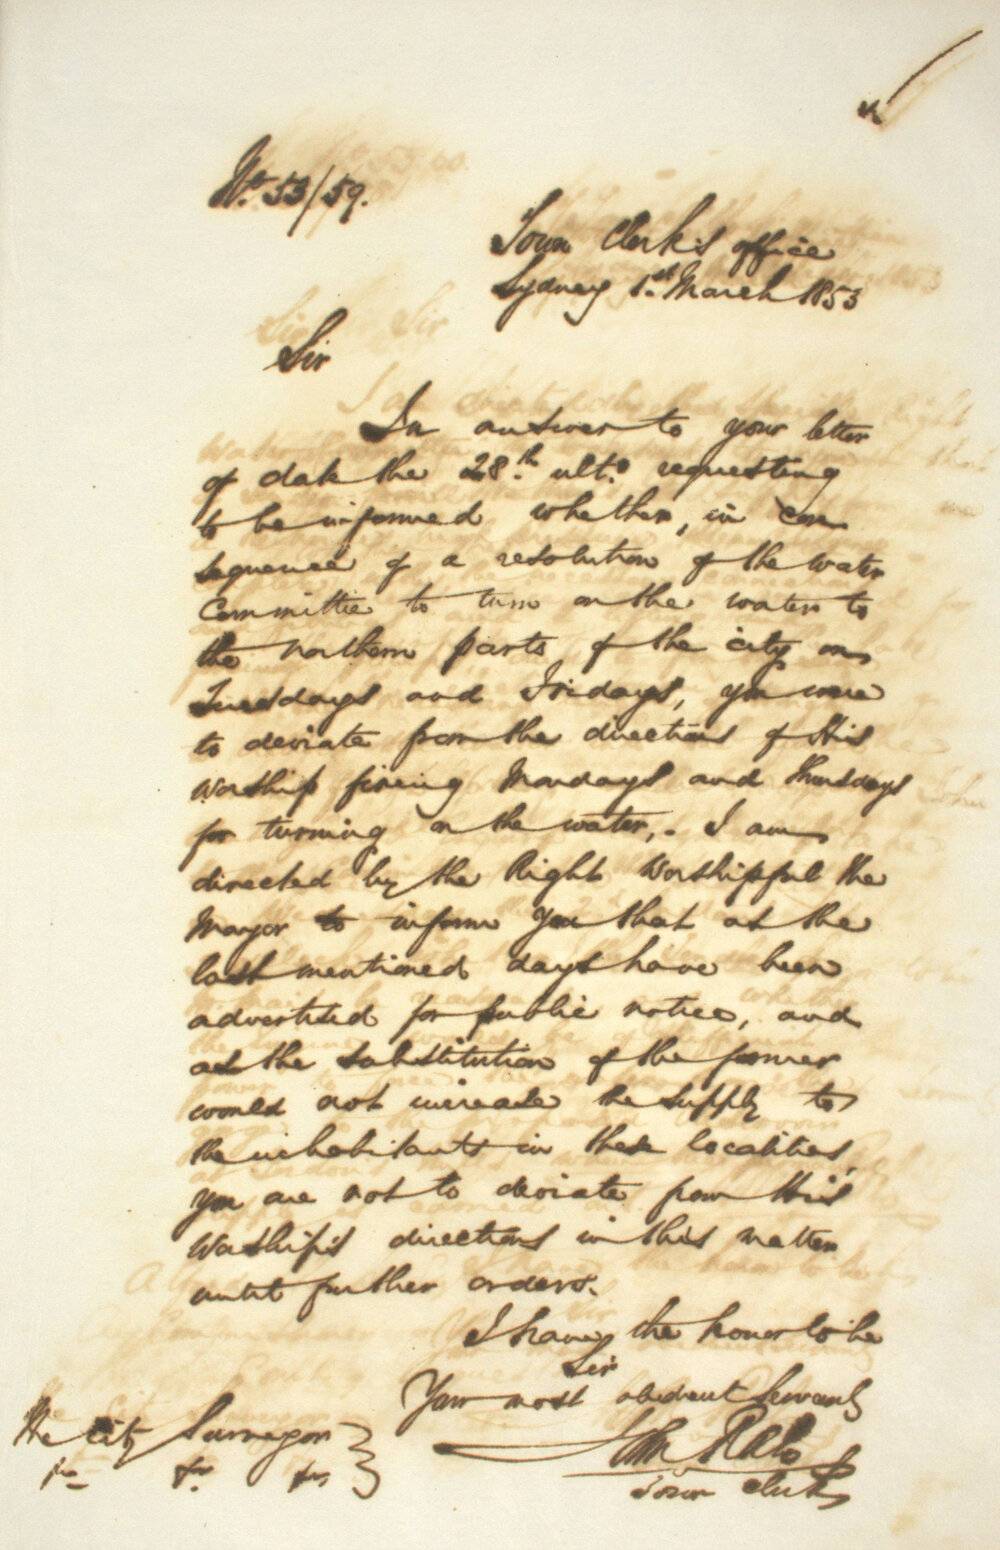 No. 53/59.
Town Clerk's office
Sydney 1st. March 1853
Sir
In answer to your letter
of date the 28th. ulto. requesting
to be informed whether, in con
sequence of a resolution of the water
Committee to turn on the water to
the northern parts of the city on
Tuesdays and Fridays, you were
to deviate from the directions of His
Worship fixing Mondays and Thursdays
for turning on the water,. I am
directed by the Right Worshipful the
Mayor to inform you that as the
last mentioned days have been
advertised for public notice, and
as the substitution of the former
would not increase the supply to
the inhabitants in these localities,
you are not to deviate from His
Worship's directions in this matter
until further orders.
I have the honor to be
Sir
Your most obedient Servant
John
Town Clerk
The City Surveyor